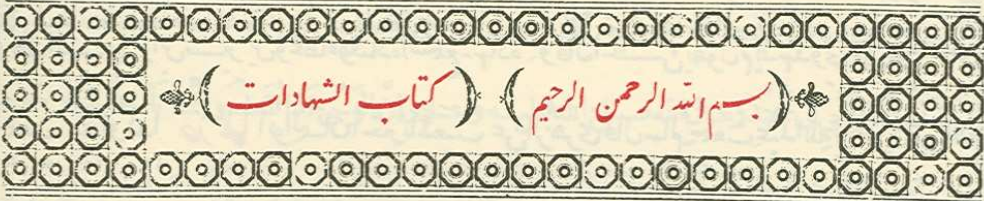 (بسم الله الرحمن الرحيم) (كتاب الشهادات)